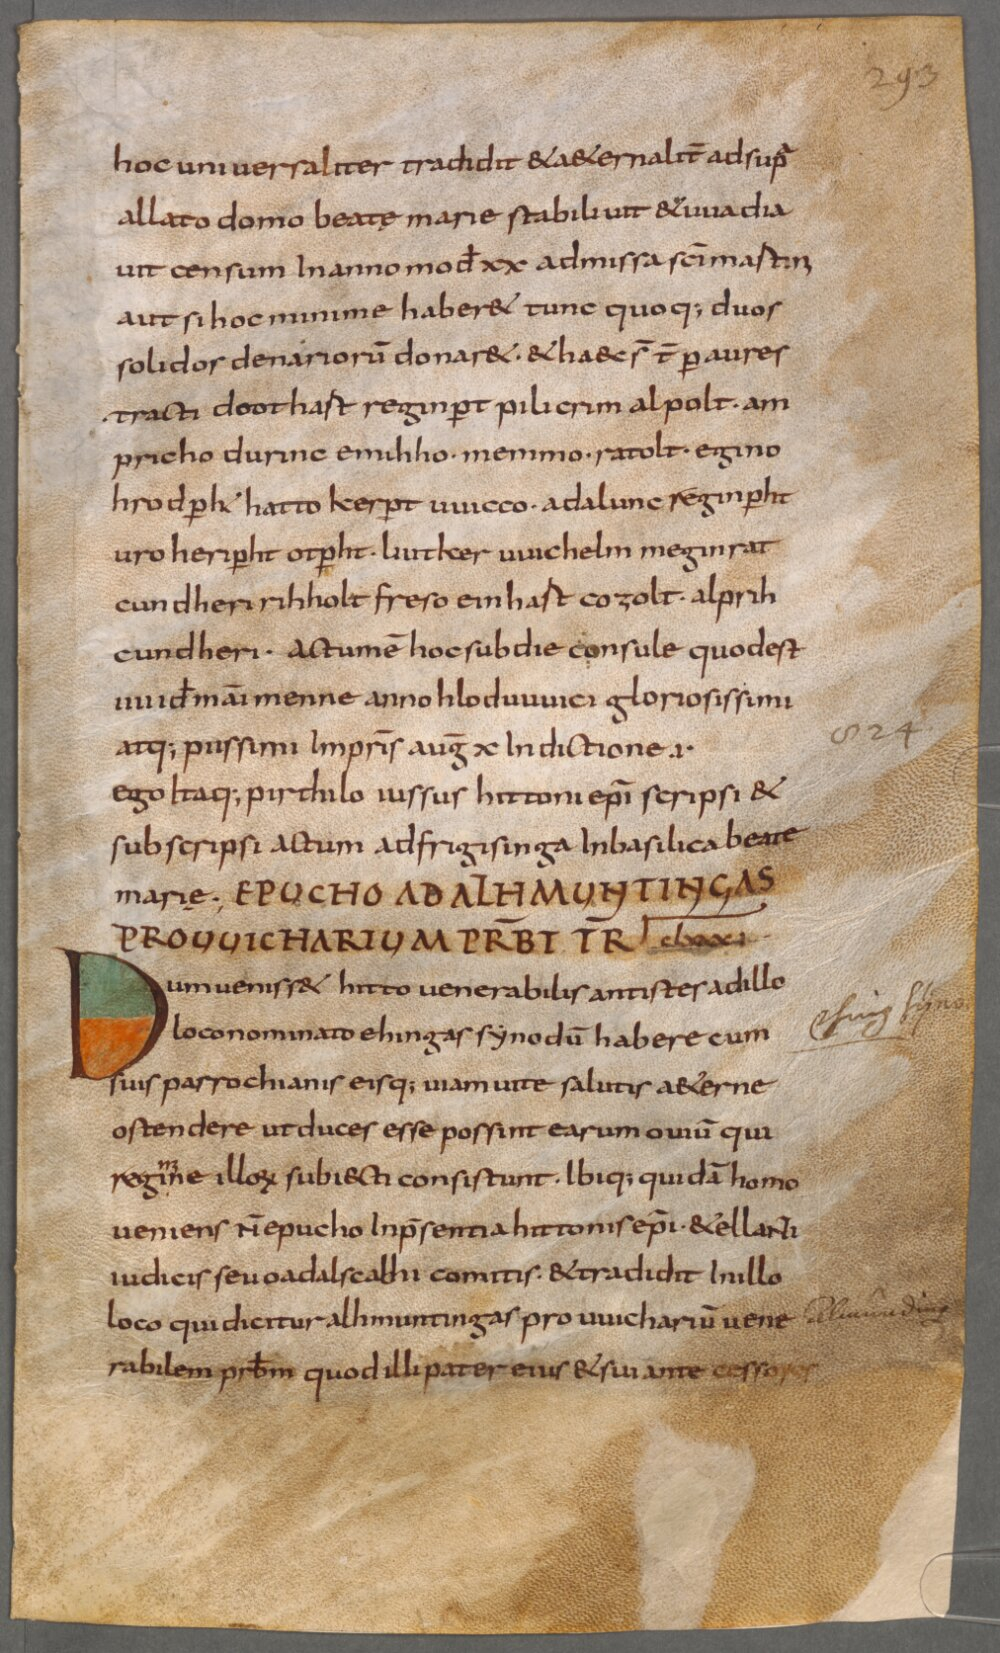 293
hoc uniuersaliter tradidit &a&ernalit̄ adsup̄
allato domo beatę marie stabiliuit &uuadia
uit censum Inanno mod̄ xx admissa sc̄i mastin
aut si hoc minime haber& tunc quoq; duos
solidos denariorū donar&· &ha&c s̄ t̄ ꝑ aures
·tracti doothast reginꝑt pilicrim alpolt· am
pricho durinc emihho· memmo· ratolt· egino
hrodꝑht hatto kerꝑt uuicco· adalunc reginꝑht
uro heriꝑht otꝑht· liutker uuichelm meginrat
cundheri rihholt freso einhast cozolt· alprih
cundheri· actumē hoc subdie consule quodest
uuid̄ māi menne anno hloduuuici gloriosissimi
atq; piissimi Impr̄is auḡ x Indictione ·i·
824
ego Itaq; pirthilo iussus hittoni ep̄i scripsi &
subscripsi actum adfrigisinga Inbasilica beate
marię· EPUCHO AD ALHMUNTINGAS
PROUUICHARIUM PR̄BT TR̄ clxxxi
Dum ueniss& hitto uenerabilis antistes adillo
loconominato ehingas synodū habere cum
Ehing Syno
suis parrochianis eisq; uiam uite salutis a&erne
ostendere ut duces esse possint earum ouiū qui
regimine illoꝝ subi&cti consistunt· Ibiq; quidā homo
ueniens n̄ epucho Inp̄sentia hittonis ep̄i· &ellanti
iudicis seu oadalscalhi comitis· &tradidit Inillo
loco qui dicitur alhmuntingas pro uuichariū uene
rabilem prb̄m quod illi pater eius &sui ante cessores